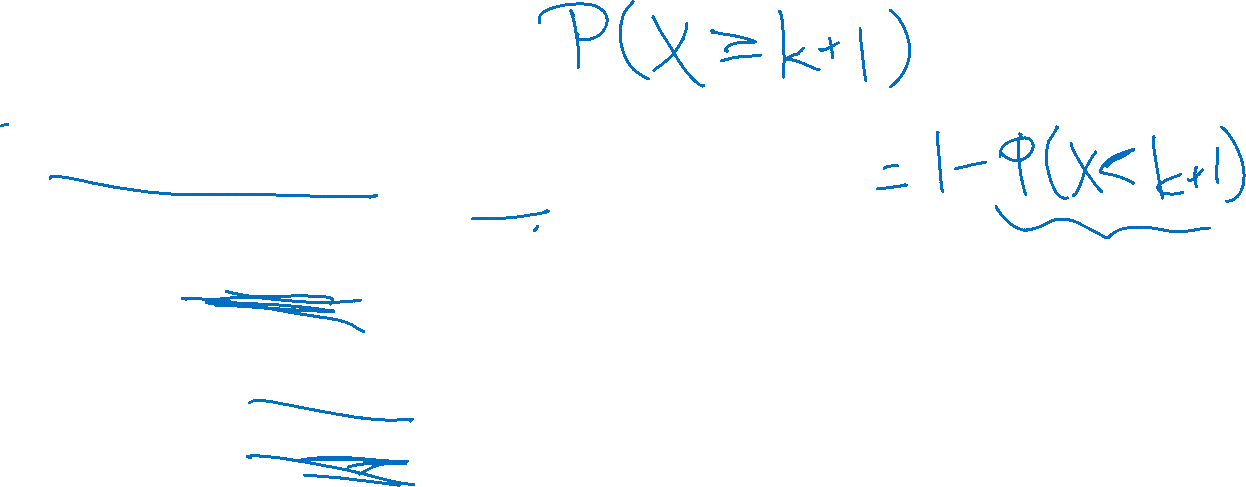 P(X ≥ k+1)
= 1 - P(X < k+1)